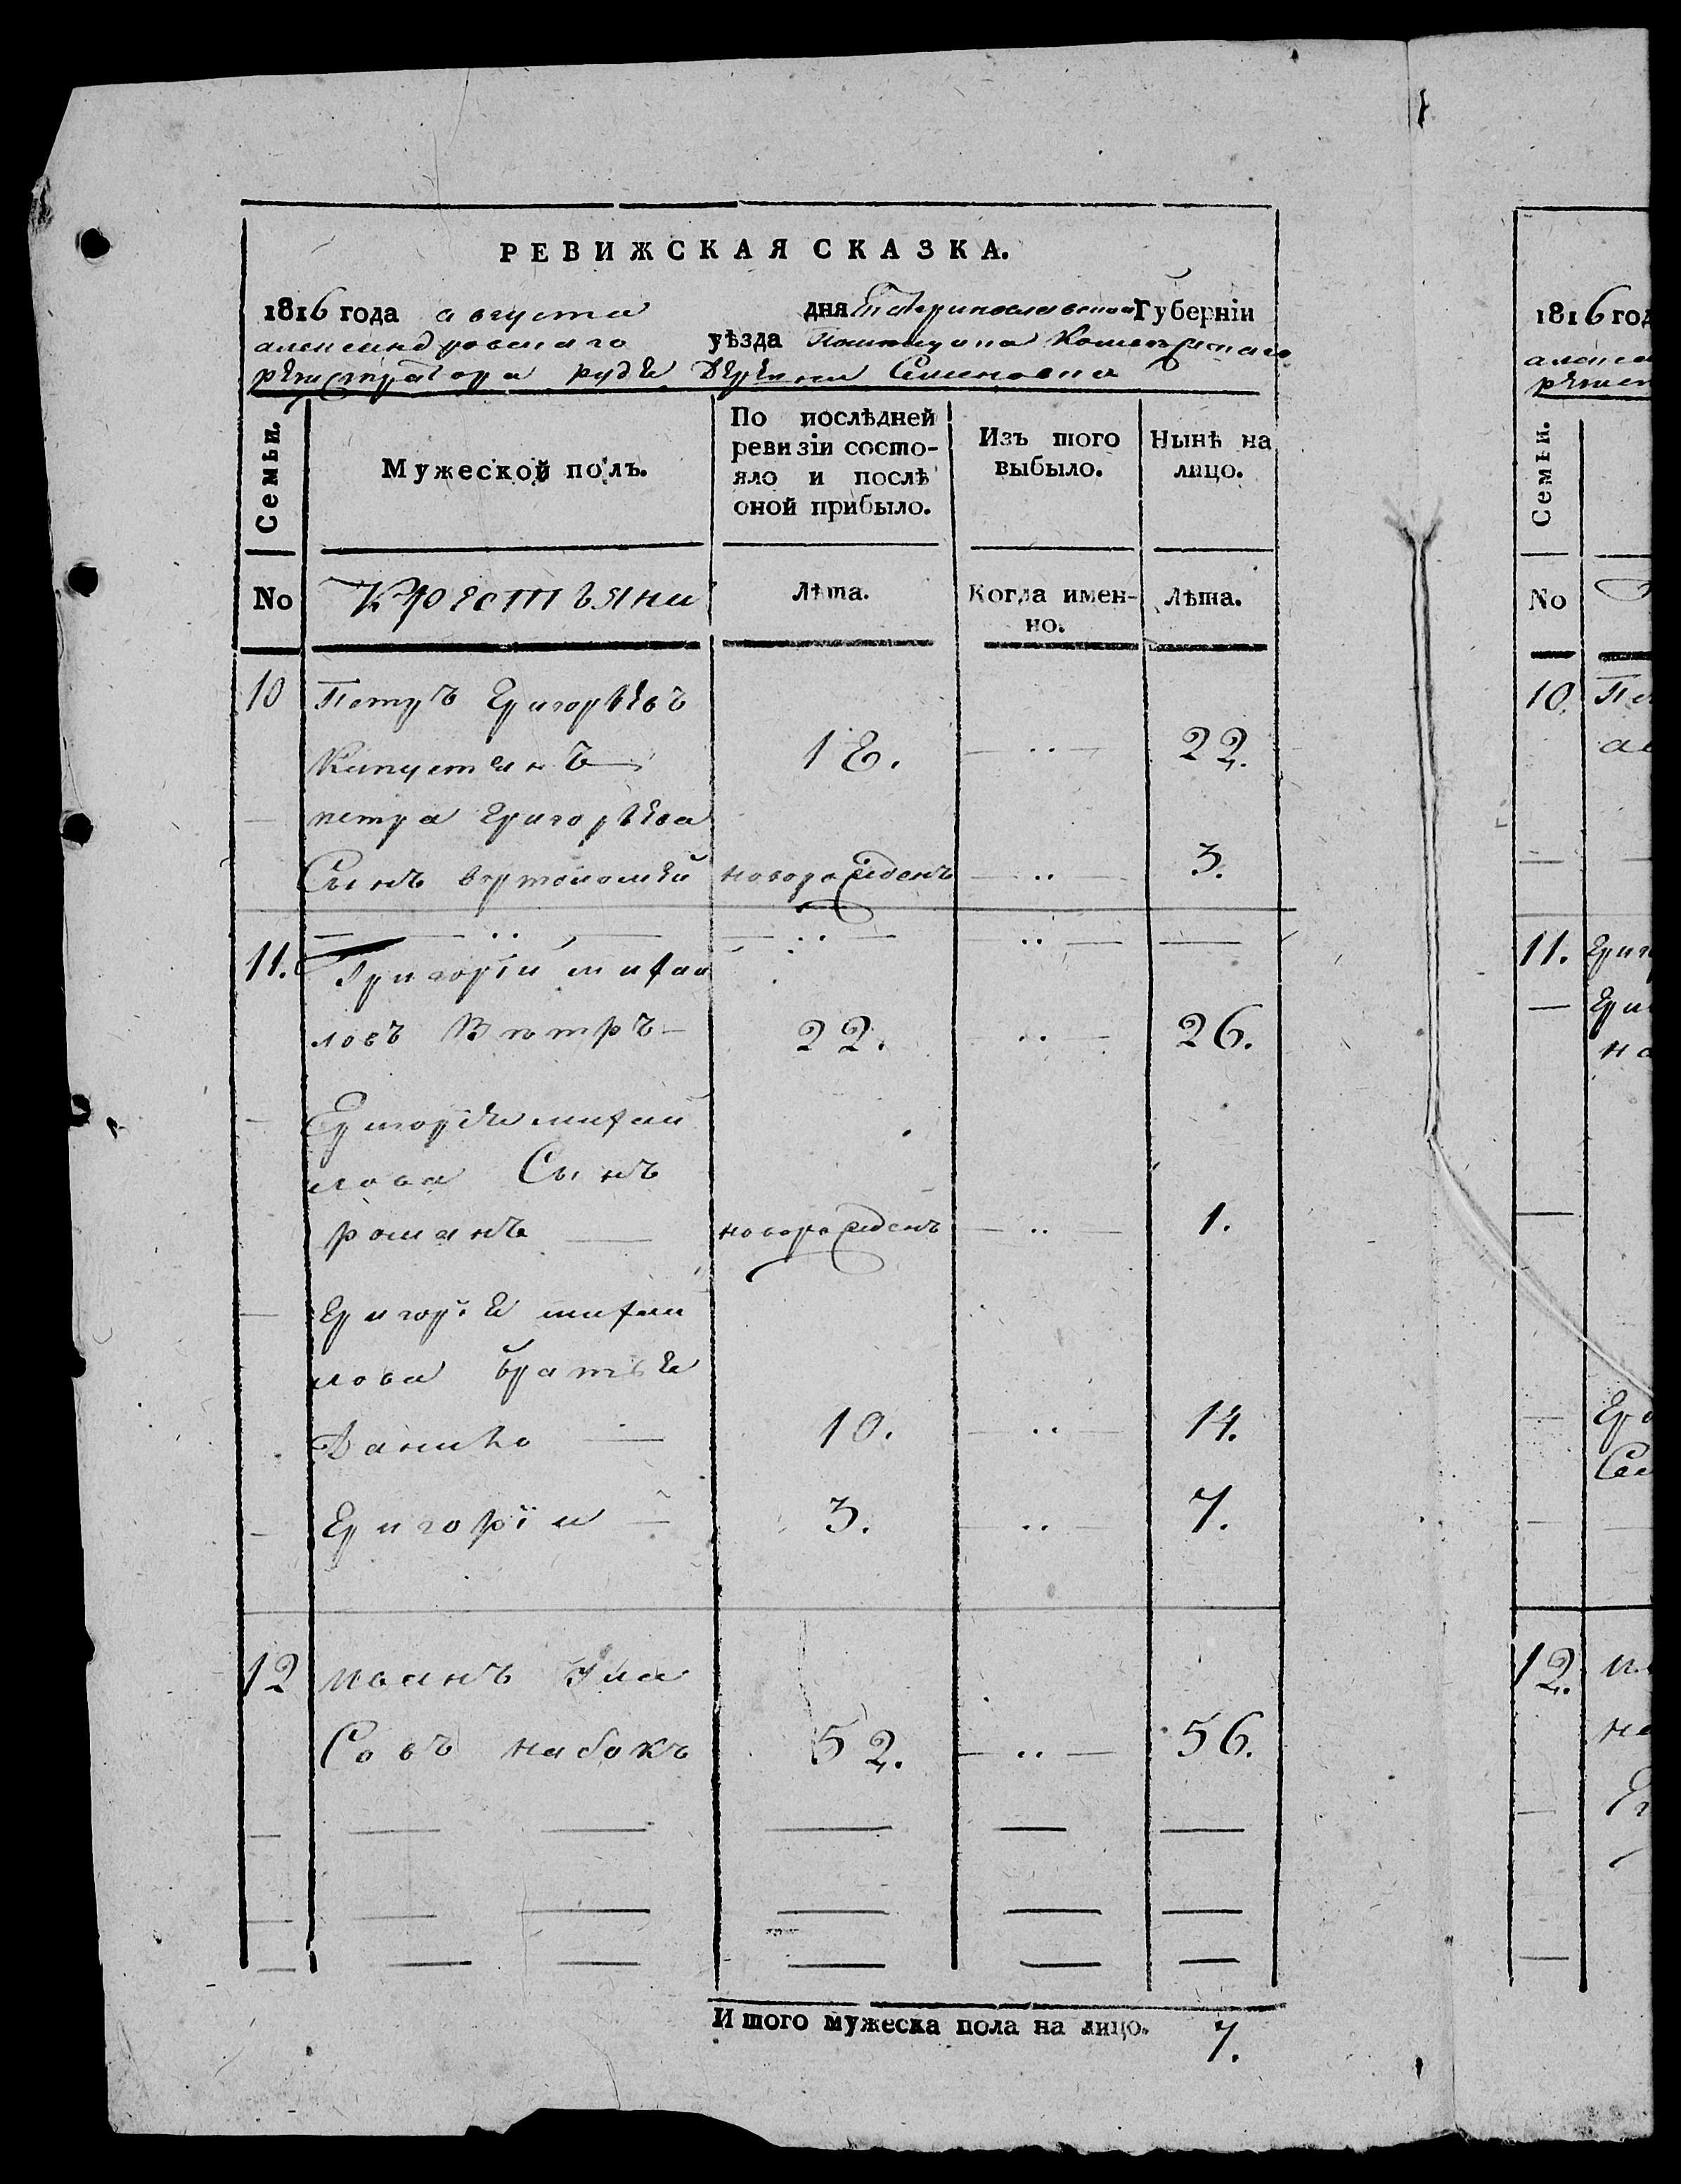 РЕВИЖСКАЯ СКАЗКА.
1816 года августа дня Екатеринославской Губерніи
александровскаго уѣзда Помещика Колежскаго
регистратора рудѣ Деревни Семеновки
Семьи.
Мужеской полъ.
По послѣдней ревизіи состояло и послѣ оной прибыло.
Изъ того выбыло.
Нынѣ на лицо.
No Крестьяни Лѣта. Когда именно. Лѣта.
10 Петръ Григорьевъ
Капустянъ 18. 22.
петра Григорьева
Сынъ вортоломей новорожденъ 3.
11. Григорій михаи
ловъ Вѣтръ 22. 26.
Григорія михаи
лова Сынъ
романъ новорожденъ 1.
Григорія михаи
лова братья
Данило 10. 14.
Григорій 3. 7.
12 иванъ Ула
Совъ набокъ 52. 56.
Итого мужеска пола на лицо. 7.
1816 год
Семьи.
No
10.
11. Григ
Гри
на
Сем
12.